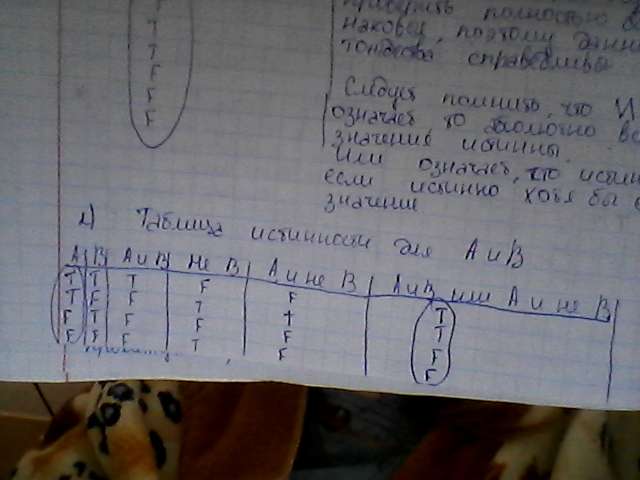 T
T
F
F
F
проверить полностью
наковы, поэтому данн
тождества справедливы
Следует помнить, что И
означает то абсолютно вс
значение истинны.
Или означает, что истин
если истинно хотя бы
значение
2) Таблица истинности для А и В
А В А и В Не В А и не В А и В или А и не В
T T T F F T
T F F T T T
F T F F F F
F F F T F F